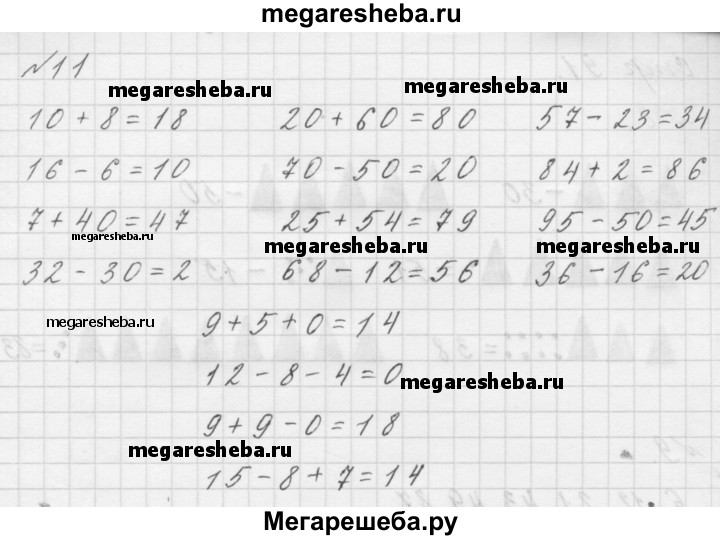 megaresheba.ru
№11
megaresheba.ru megaresheba.ru
10 + 8 = 18 20 + 60 = 80 57 - 23 = 34
16 - 6 = 10 70 - 50 = 20 84 + 2 = 86
7 + 40 = 47 25 + 54 = 79 95 - 50 = 45
megaresheba.ru megaresheba.ru megaresheba.ru
32 - 30 = 2 68 - 12 = 56 36 - 16 = 20
megaresheba.ru 9 + 5 + 0 = 14
12 - 8 - 4 = 0 megaresheba.ru
9 + 9 - 0 = 18
megaresheba.ru
15 - 8 + 7 = 14
Мегарешеба.ру